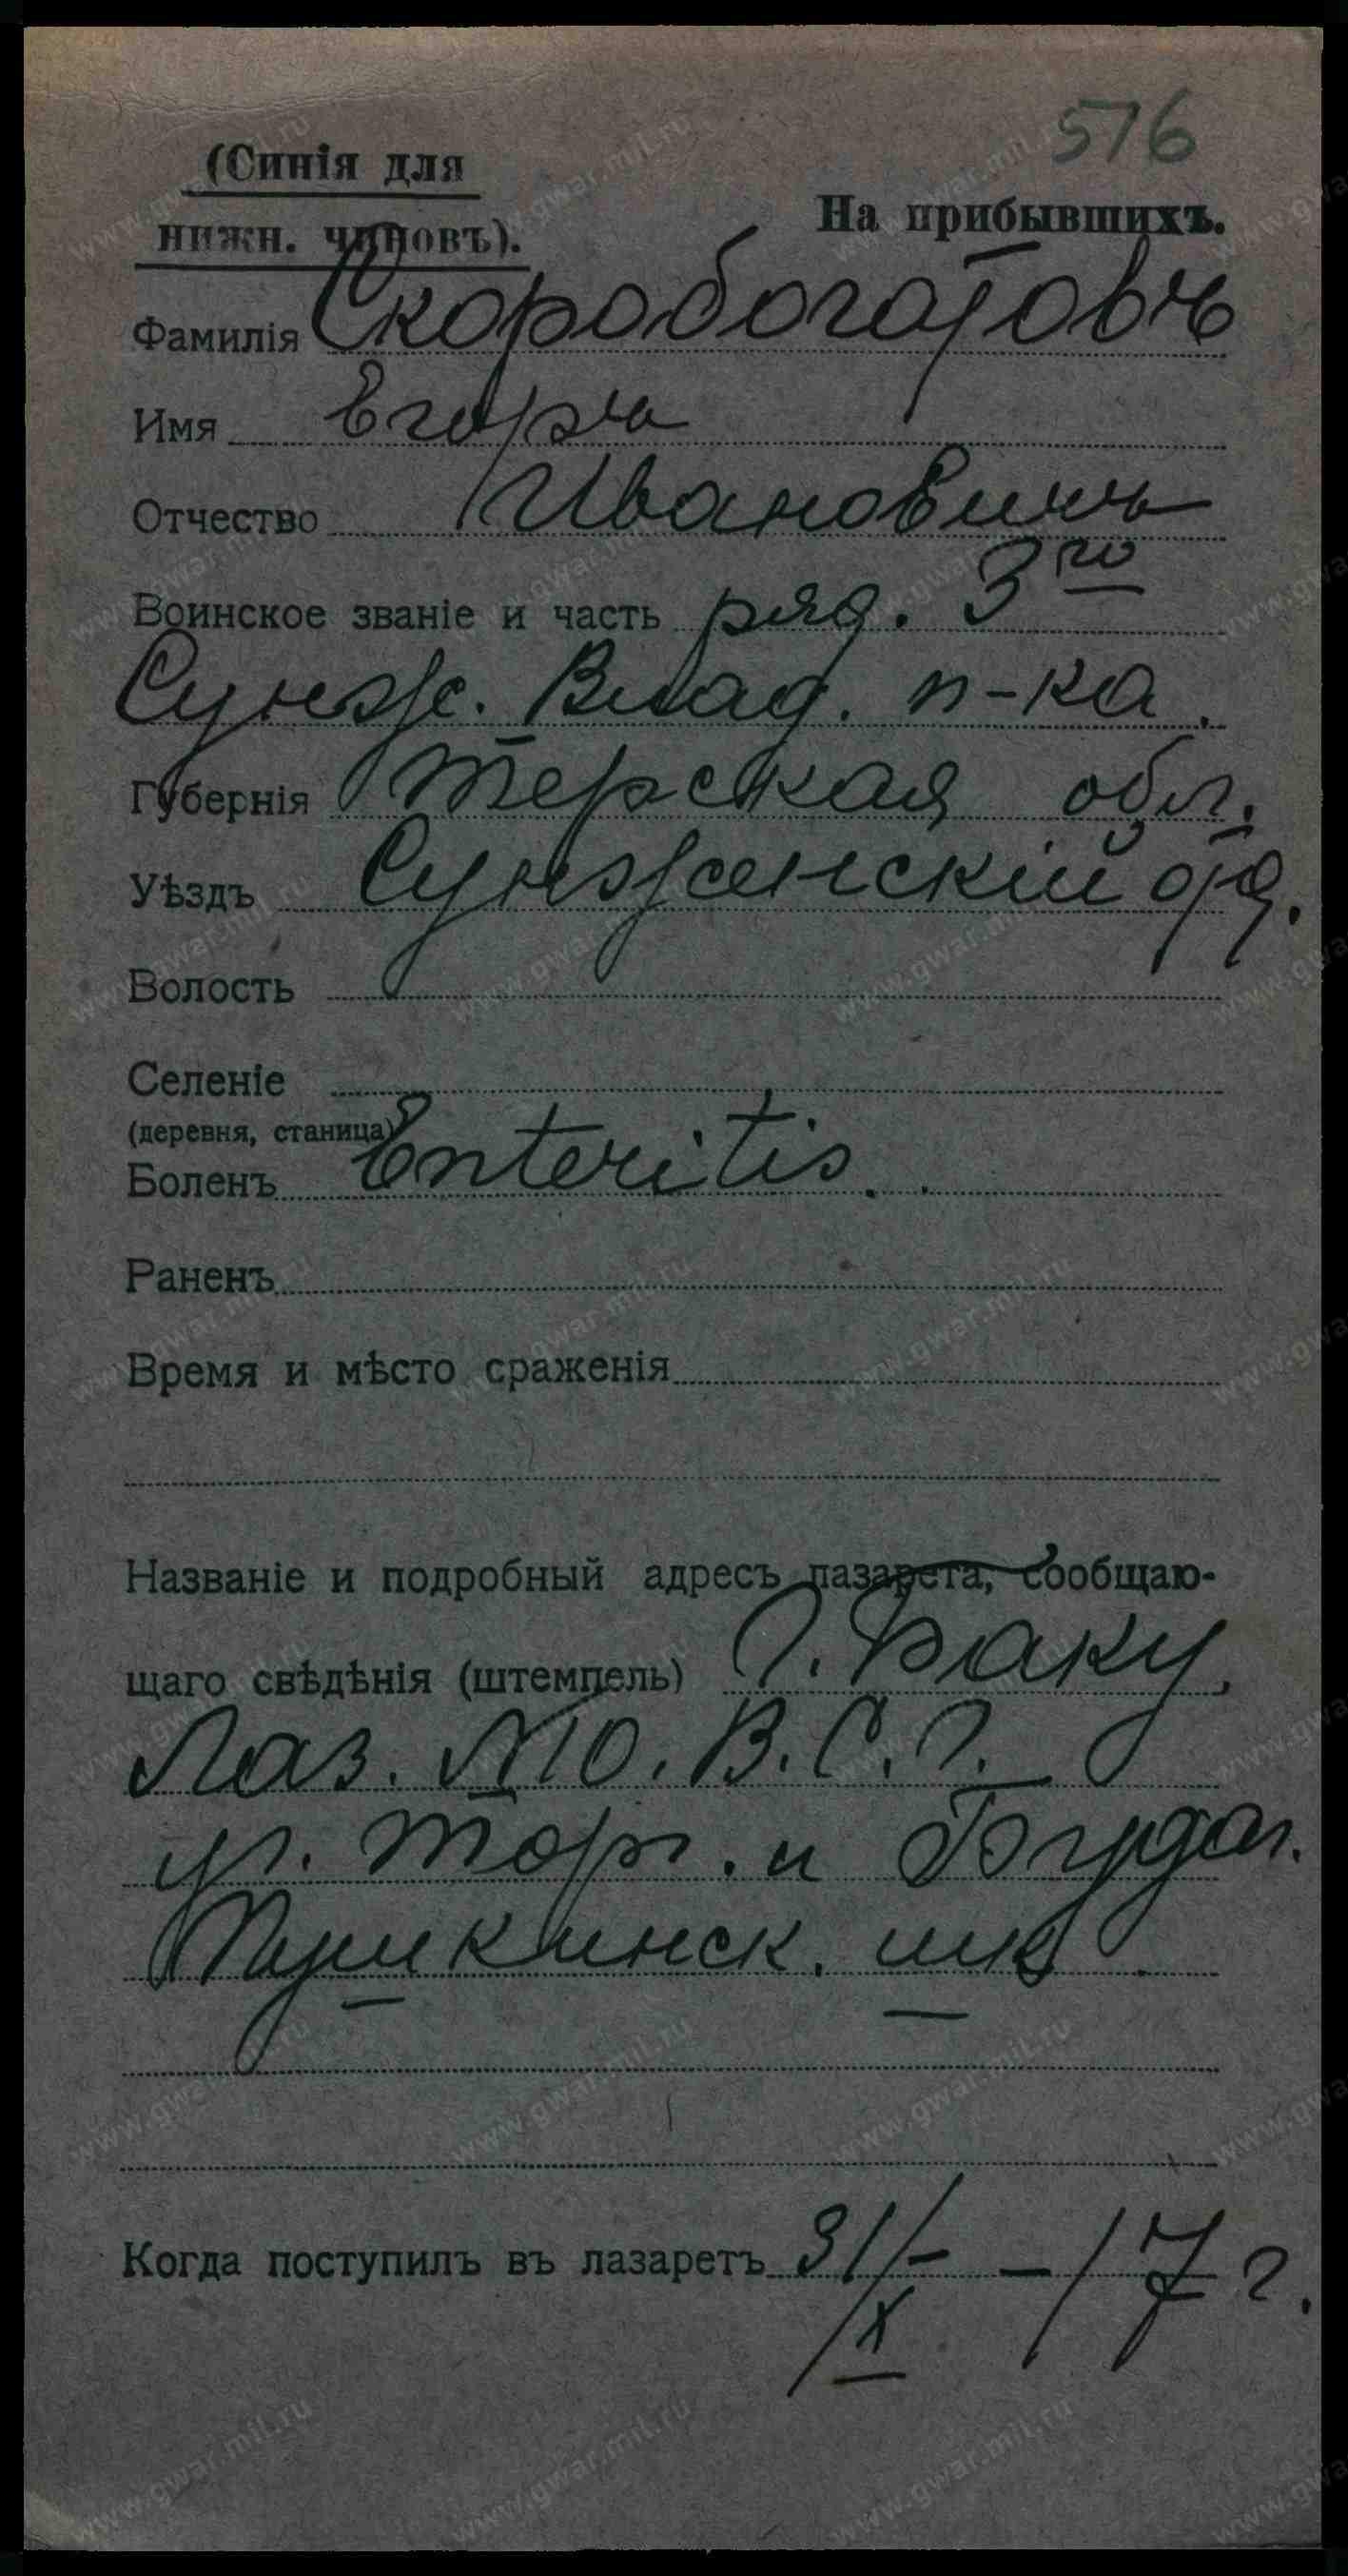 576
(Синія для
нижн. чиновъ).
На прибывшихъ.
Фамилія Скоробогатовъ
Имя Егоръ
Отчество Ивановичъ
Воинское званіе и часть ряд. 3го
Сунж. Влад. п-ка.
Губернія Терская обл.
Уѣздъ Сунженскій отд.
Волость
Селеніе
(деревня, станица)
Боленъ Enteritis.
Раненъ
Время и мѣсто сраженія
Названіе и подробный адресъ лазарета, сообщаю-
щаго свѣдѣнія (штемпель) Г. Баку,
Лаз. №10. В.С.Г.
уг. Торг. и Бгудаг.
Пушкинск. шк.
Когда поступилъ въ лазаретъ 31/X - 17 г.